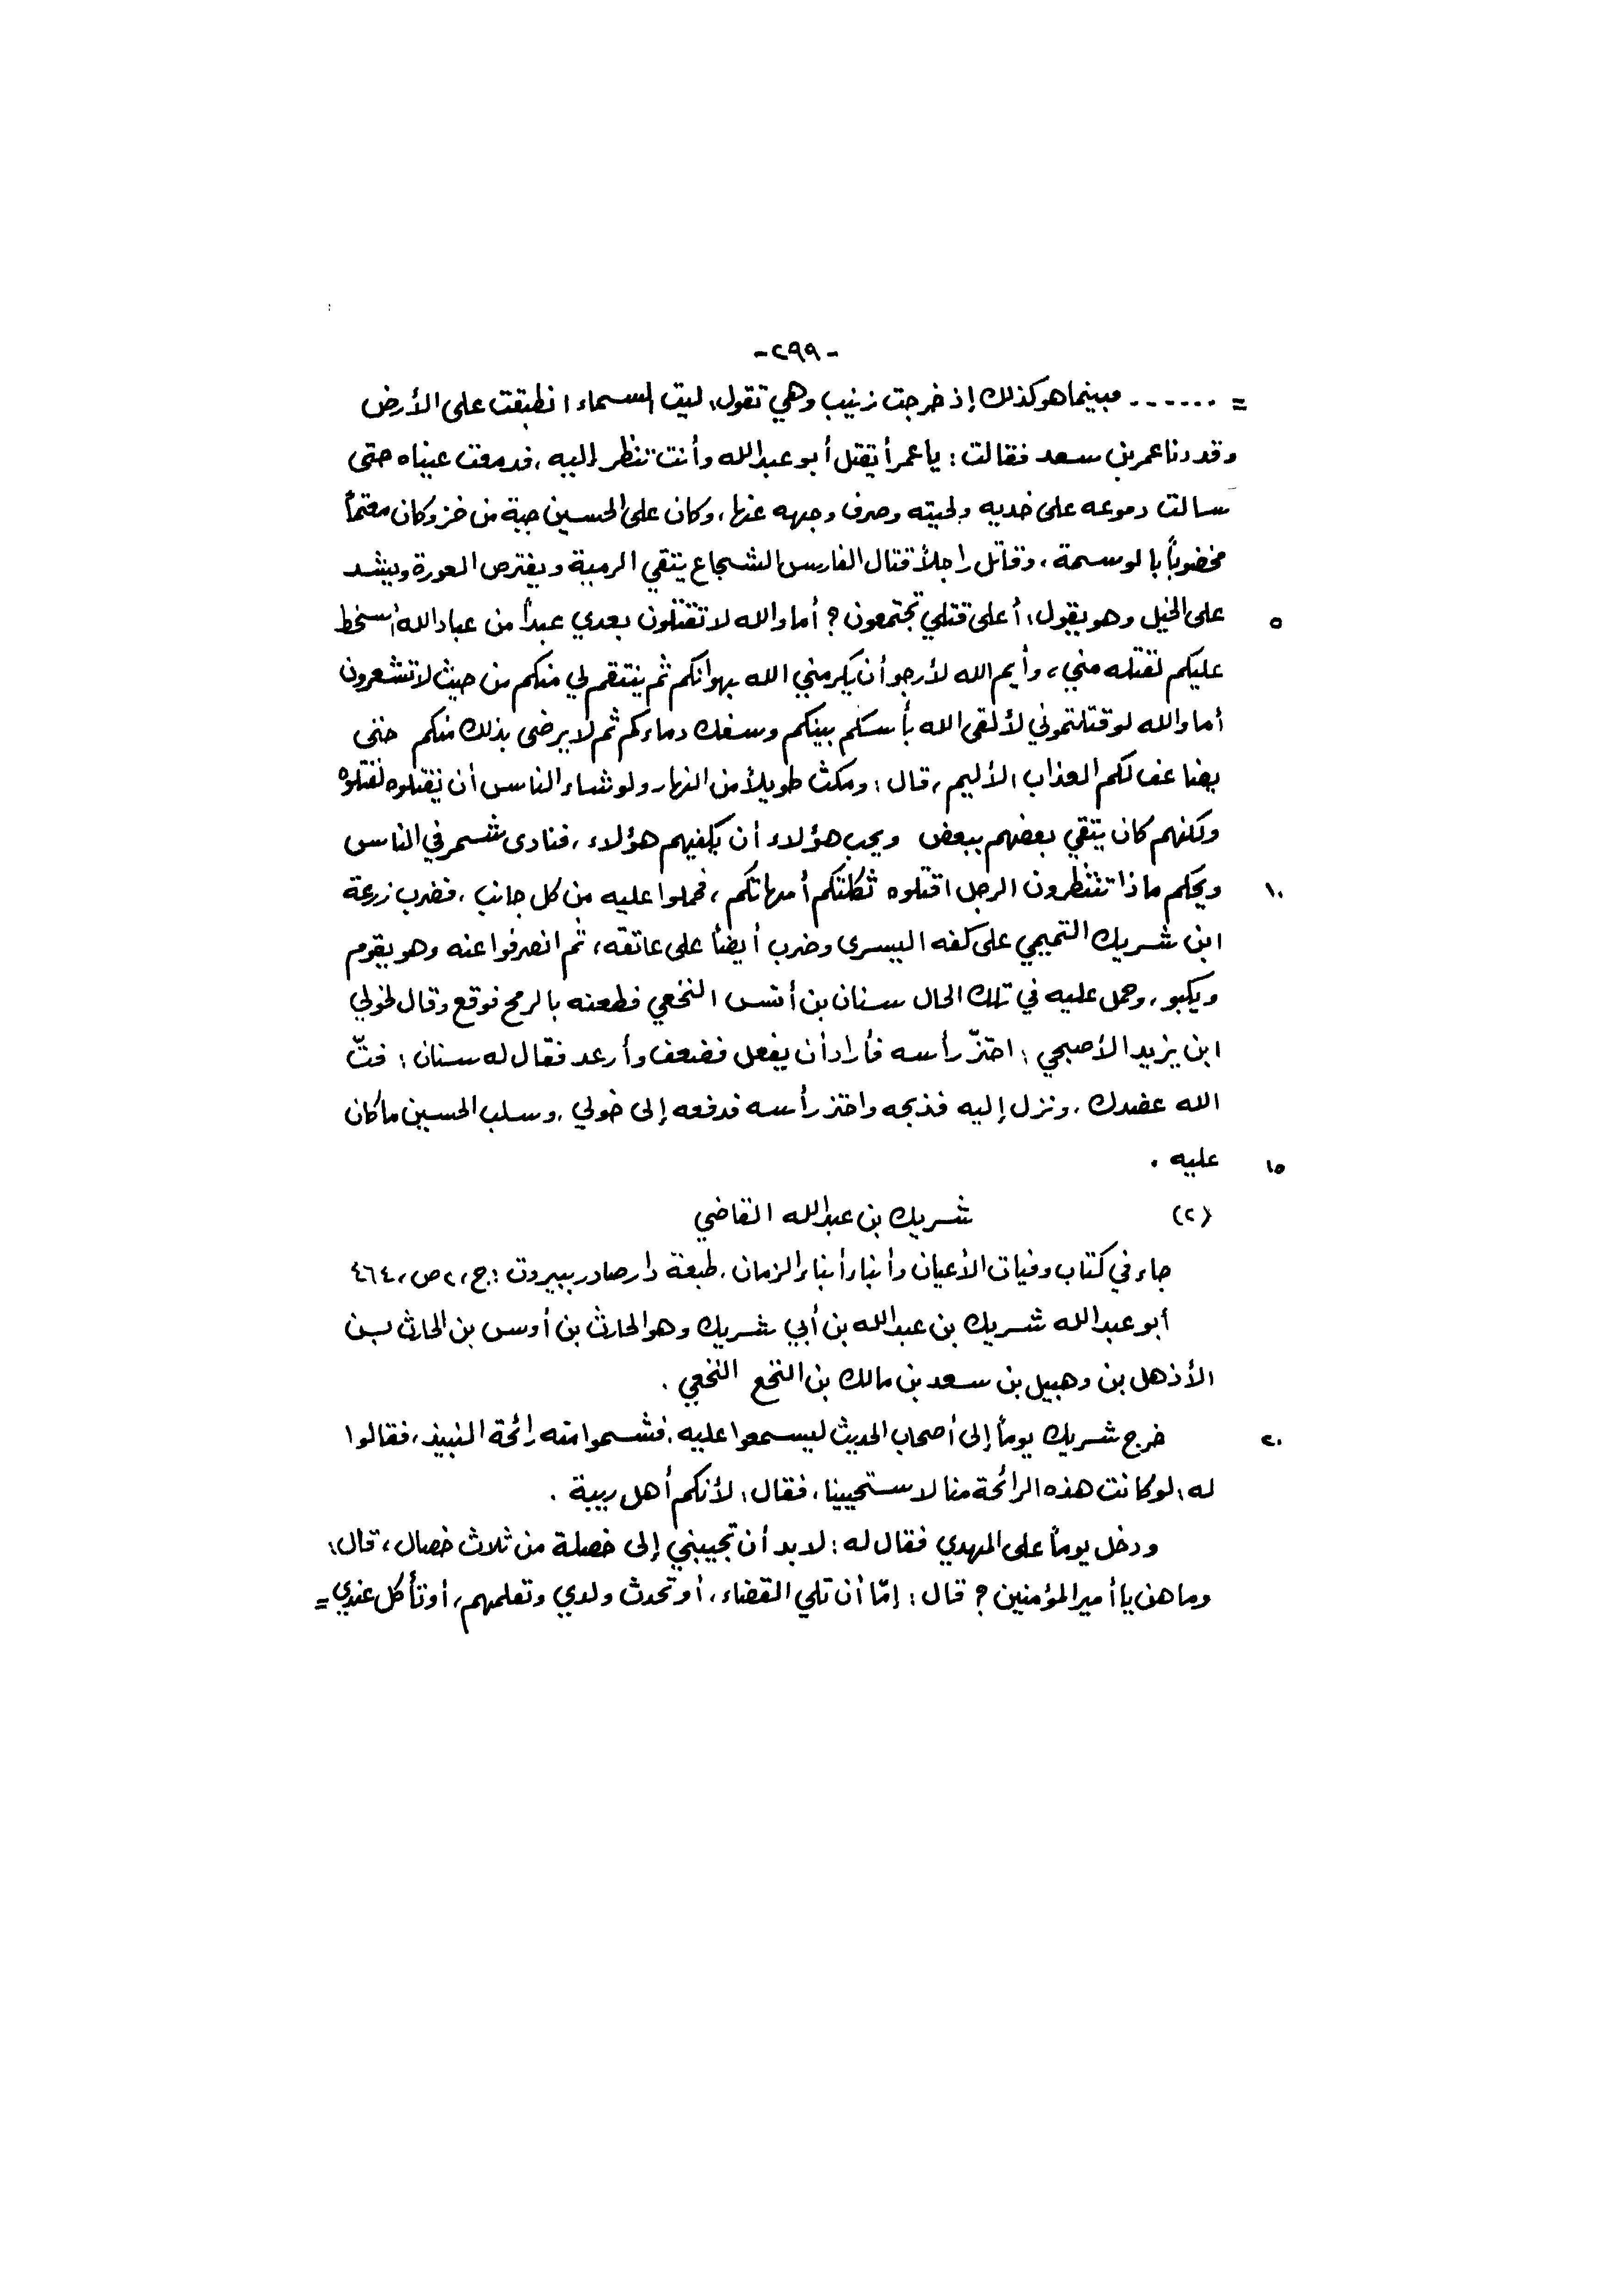 -٢٩٩-
= ...... فبينما هو كذلك إذ خرجت زينب وهي تقول: ليت السماء انطبقت على الأرض
وقد دنا عمر بن سعد فقالت: يا عمر أيقتل أبو عبد الله وأنت تنظر إليه، فدمعت عيناه حتى
سالت دموعه على خديه ولحيته وصرف وجهه عنها، وكان على الحسين جبة من خز وكان معتماً
مخضوباً بالوسمة، وقاتل راجلاً قتال الفارس الشجاع يتقي الرمية ويفترص العورة ويشد
على الخيل وهو يقول: أعلى قتلي تجتمعون؟ أما والله لا تقتلون بعدي عبداً من عباد الله أسخط ٥
عليكم لقتله مني، وأيم الله لأرجو أن يكرمني الله بهوانكم ثم ينتقم لي منكم من حيث لا تشعرون
أما والله لو قتلتموني لألقى الله بأسكم بينكم وسفك دماءكم ثم لا يرضى بذلك منكم حتى
يضاعف لكم العذاب الأليم، قال: ومكث طويلاً من النهار ولو شاء الناس أن يقتلوه لقتلوه
ولكنهم كان يتقي بعضهم ببعض ويحب هؤلاء أن يكفيهم هؤلاء، فنادى شمر في الناس
ويحكم ماذا تنتظرون الرجل اقتلوه ثكلتكم أمهاتكم، فحملوا عليه من كل جانب، فضرب زرعة ١٠
ابن شريك التميمي على كفه اليسرى وضرب أيضاً على عاتقه، ثم انصرفوا عنه وهو يقوم
ويكبو، وحمل عليه في تلك الحال سنان بن أنس النخعي فطعنه بالرمح فوقع وقال لخولي
ابن يزيد الأصبحي: احتزّ رأسه فأراد أن يفعل فضعف وأرعد فقال له سنان: فتّ
الله عضدك، ونزل إليه فذبحه واحتز رأسه فدفعه إلى خولي، وسلب الحسين ما كان
عليه . ١٥
(٢) شريك بن عبد الله القاضي
جاء في كتاب وفيات الأعيان وأنباء أبناء الزمان، طبعة دار صادر ببيروت: ج، ٢ ص، ٤٦٤
أبو عبد الله شريك بن عبد الله بن أبي شريك وهو الحارث بن أوس بن الحارث بن
الأذهل بن وهبيل بن سعد بن مالك بن النخع النخعي .
خرج شريك يوماً إلى أصحاب الحديث ليسمعوا عليه، فشموا منه رائحة النبيذ، فقالوا ٢٠
له: لو كانت هذه الرائحة منا لاستحيينا، فقال: لأنكم أهل ريبة .
ودخل يوماً على المهدي فقال له: لابد أن تجيبني إلى خصلة من ثلاث خصال، قال:
وما هن يا أمير المؤمنين؟ قال: إمّا أن تلي القضاء، أو تحدث ولدي وتعلمهم، أو تأكل عندي =